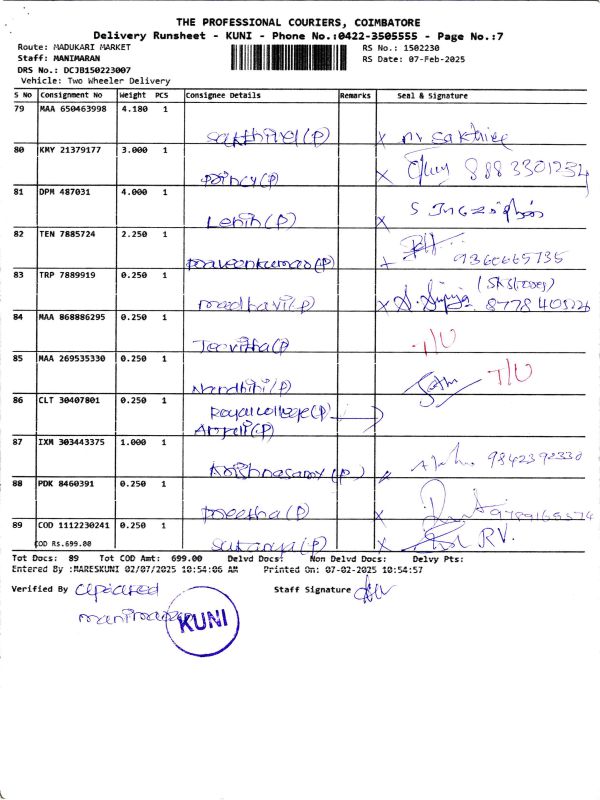 THE PROFESSIONAL COURIERS, COIMBATORE
Delivery Runsheet - KUNI - Phone No.:0422-3505555 - Page No.:7
Route: MADUKARI MARKET
RS No.: 1502230
Staff: MANIMARAN
RS Date: 07-Feb-2025
DRS No.: DCJB150223007
Vehicle: Two Wheeler Delivery
S No Consignment No Weight PCS Consignee Details Remarks Seal & Signature
79 MAA 650463998 4.180 1
sakthivel(P) x
80 KMY 21379177 3.000 1
x 8883301254
81 DPM 487031 4.000 1
Lenin(P) x
82 TEN 7885724 2.250 1
Praveenkumar(P) 9360665735
83 TRP 7889919 0.250 1
madhavi(P) x 8778403226
84 MAA 868886295 0.250 1
Jeevitha(P) T/U
85 MAA 269535330 0.250 1
Nandhini(P) T/U
86 CLT 30407801 0.250 1
Royal college(P)
Anjali(P)
87 IXM 303443375 1.000 1
Krishnasamy(P) 9842390330
88 PDK 8460391 0.250 1
Preetha(P) x 9789165574
89 COD 1112230241 0.250 1
COD Rs.699.00
Saranya(P) x RV.
Tot Docs: 89 Tot COD Amt: 699.00 Delvd Docs: Non Delvd Docs: Delvy Pts:
Entered By :MARESKUNI 02/07/2025 10:54:06 AM Printed On: 07-02-2025 10:54:57
Verified By Staff Signature
manimaran
KUNI